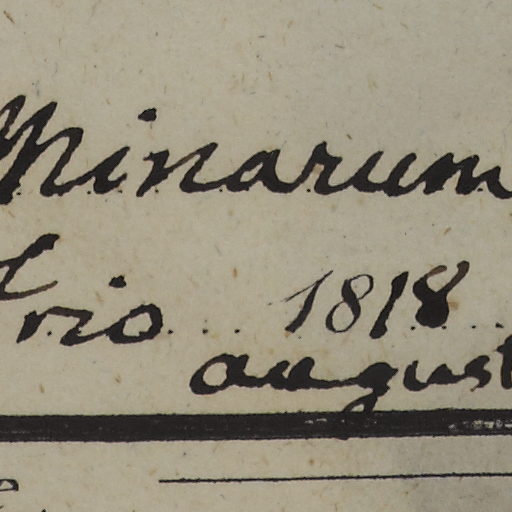 Minarum
rio 1818
august